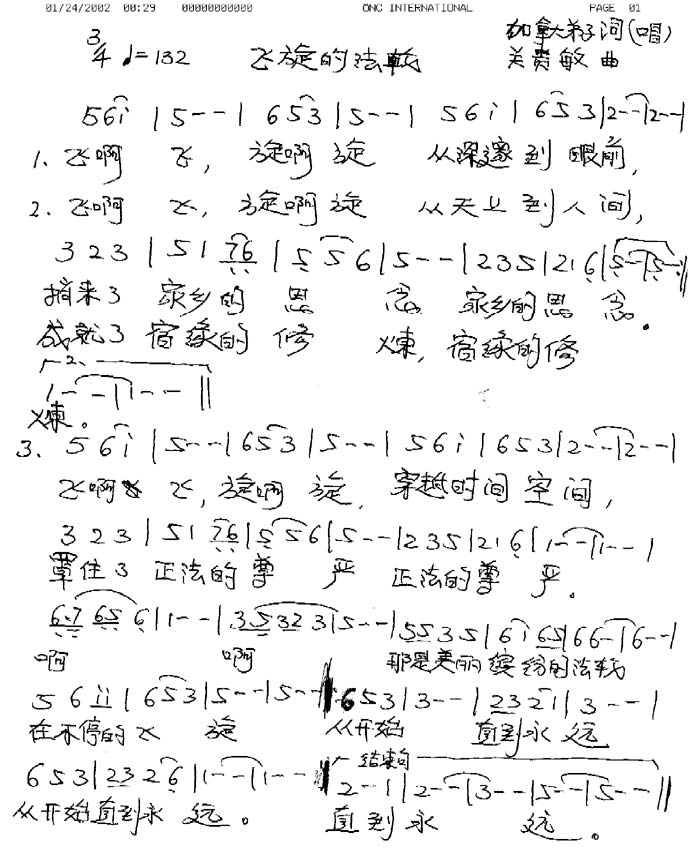 01/24/2002 00:29 00000000000 ONC INTERNATIONAL PAGE 01
3/4 ♩=132 飞旋的法轮 加拿大弟子词(唱)
关贵敏 曲
5 6 i | 5 - - | 6 5 3 | 5 - - | 5 6 i | 6 5 3 | 2 - - | 2 - - |
1. 飞啊 飞, 旋啊 旋 从深邃到 眼前,
2. 飞啊 飞, 旋啊 旋 从天上到人间,
3 2 3 | 5 1 7 6 | 5 5 6 | 5 - - | 2 3 5 | 2 1 6 | 5 - - | 5 - - ‖
捎来了 家乡的 思 念 家乡的思 念。
成就了 宿缘的 修 炼, 宿缘的修
2.
1 - - | 1 - - ‖
炼。
3. 5 6 i | 5 - - | 6 5 3 | 5 - - | 5 6 i | 6 5 3 | 2 - - | 2 - - |
飞啊 飞, 旋啊 旋, 穿越时间 空间,
3 2 3 | 5 1 7 6 | 5 5 6 | 5 - - | 2 3 5 | 2 1 6 | 1 - - | 1 - - |
罩住了 正法的尊 严 正法的尊 严。
6·7 6 5 6 | 1 - - | 3 5 3 2 3 | 5 - - | 5 5 3 5 | 6 i 6 5 | 6 6 - | 6 - - |
啊 啊 那是美丽缤纷的法轮
5 6 i i | 6 5 3 | 5 - - | 5 - - | 6 5 3 | 3 - - | 2 3 2 1 | 3 - - |
在不停的飞 旋 从开始 直到永 远
6 5 3 | 2 3 2 6 | 1 - - | 1 - - | 结束句 2 - 1 | 2 - - | 3 - - | 5 - - | 5 - - ‖
从开始直到永 远。 直到永 远。